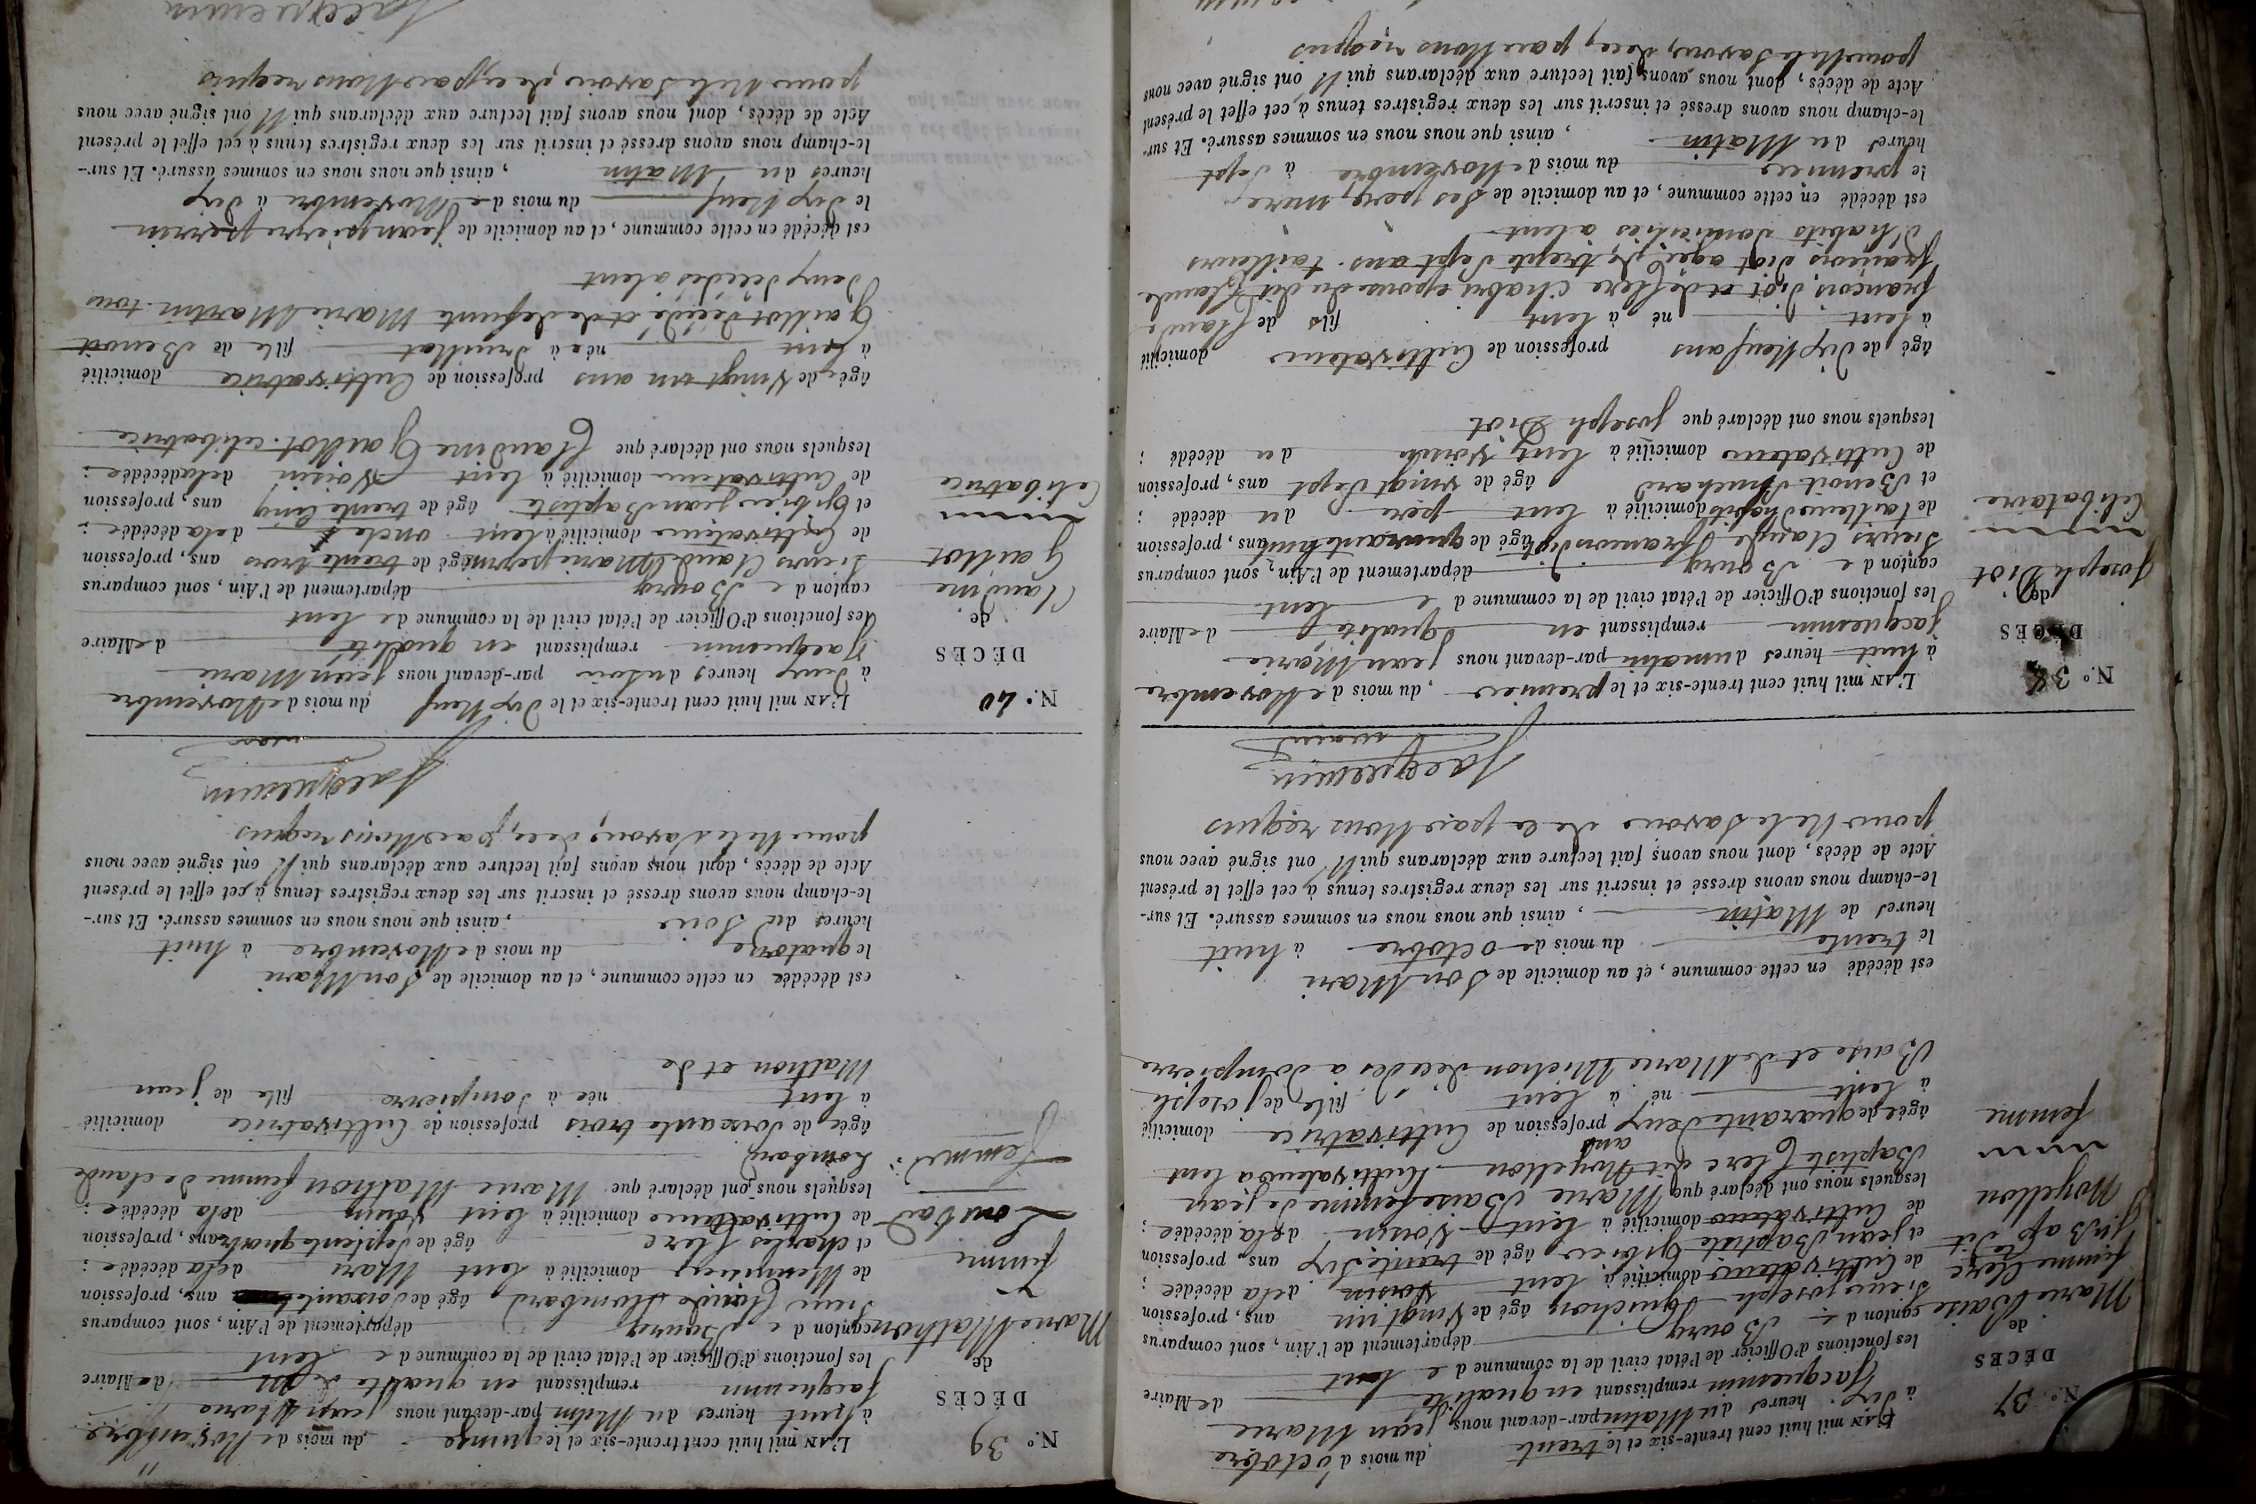 N.º 37
DÉCÈS
de
Marie Baise
femme Clerc
Jn Bapte dit
Moyellon
femme
L'AN mil huit cent trente-six et le trente du mois d'octobre
à dix heures du Matin par-devant nous jean Marie
Jacquemin remplissant en qualité de Maire
les fonctions d'Officier de l'état civil de la commune de lent
canton de Bourg département de l'Ain, sont comparus
Sieurs joseph âgé de vingt un ans, profession
de Cultivateur domicilié à lent voisin dela décédée ;
et jean Baptiste âgé de trente six ans, profession
de Cultivateur domicilié à lent Voisin dela décédée ;
lesquels nous ont déclaré que Marie Baise femme de jean
Baptiste Clerc dit Moyellon Cultivateur a lent
âgée de quarante deux ans profession de Cultivatrice domicilié
à lent né à lent fille de joseph
Baise et de Marie Michon décédés a dompierre
est décédée en cette commune, et au domicile de Son Mari
le trente du mois de octobre à huit
heures de Matin, ainsi que nous nous en sommes assuré. Et sur-
le-champ nous avons dressé et inscrit sur les deux registres tenus à cet effet le présent
Acte de décès, dont nous avons fait lecture aux déclarans qui N ont signé avec nous
pour Ne le Savoir de ce par Nous requis
Jacquemin
maire
N.º 38
DÉCÈS
de
joseph Diot
Celibataire
L'AN mil huit cent trente-six et le premier, du mois de Novembre
à huit heures du matin par-devant nous jean Marie
jacquemin remplissant en qualité de Maire
les fonctions d'Officier de l'état civil de la commune de lent
canton de Bourg département de l'Ain, sont comparus
Sieurs Claude françois diot âgé de quarante huit ans, profession
de tailleur d'habits domicilié à lent père du décédé ;
et Benoit Bruchard âgé de vingt Sept ans, profession
de Cultivateur domicilié à lent Voisin du décédé ;
lesquels nous ont déclaré que joseph Diot
âgé de dix Neuf ans profession de Cultivateur domicilié
à lent né à lent fils de Claude
françois diot et de Clere Chabri epouse du dit Claude
françois diot agée de trente Sept ans. tailleurs
d'habits domiciliés a lent
est décédé en cette commune, et au domicile de Ses pere, mere
le premier du mois de Novembre à Sept
heures du Matin, ainsi que nous nous en sommes assuré. Et sur-
le-champ nous avons dressé et inscrit sur les deux registres tenus à cet effet le présent
Acte de décès, dont nous avons fait lecture aux déclarans qui N ont signé avec nous
pour Ne le Savoir, de ce, par Nous requis
N.º 39
DÉCÈS
de
Marie Mathon
femme
Lombard
femme
L'AN mil huit cent trente-six et le quinze du mois de Novembre
à huit heures du Matin par-devant nous jean Marie
Jacquemin remplissant en qualité de Maire
les fonctions d'Officier de l'état civil de la commune de lent
canton de Bourg département de l'Ain, sont comparus
Sieur Claude Lombard âgé de Soixante ans, profession
de domicilié à lent Mari dela décédée ;
et Charles Clerc âgé de Septente quatre ans, profession
de Cultivateur domicilié à lent voisin dela décédée ;
lesquels nous ont déclaré que Marie Mathon femme de claude
Lombard
âgée de Soixante trois profession de Cultivatrice domicilié
à lent née à dompierre fille de jean
Mathon et de
est décédée en cette commune, et au domicile de Son Mari
le quatorze du mois de Novembre à huit
heures du Soir, ainsi que nous nous en sommes assuré. Et sur-
le-champ nous avons dressé et inscrit sur les deux registres tenus à cet effet le présent
Acte de décès, dont nous avons fait lecture aux déclarans qui N ont signé avec nous
pour Ne le Savoir, de ce, par Nous requis
Jacquemin
maire
N.º 40
DÉCÈS
de
Claudine
Gaillot
Celibatrice
L'AN mil huit cent trente-six et le dix Neuf du mois de Novembre
à deux heures du soir par-devant nous jean Marie
Jacquemin remplissant en qualité de Maire
les fonctions d'Officier de l'état civil de la commune de lent
canton de Bourg département de l'Ain, sont comparus
Sieurs Claude Marie perrin âgé de trente trois ans, profession
de Cultivateur domicilié à lent oncle dela décédée ;
et jean Baptiste âgé de trente cinq ans, profession
de Cultivateur domicilié à lent Voisin dela décédée ;
lesquels nous ont déclaré que Claudine Gaillot. celibatrice
âgée de vingt un ans profession de Cultivatrice domicilié
à lent née à Druillat fille de Benoit
Gaillot décédé et de defunte Marie Martin tous
deux décédés a lent
est décédée en cette commune, et au domicile de jean pierre perrin
le dix Neuf du mois de Novembre à dix
heures du Matin, ainsi que nous nous en sommes assuré. Et sur-
le-champ nous avons dressé et inscrit sur les deux registres tenus à cet effet le présent
Acte de décès, dont nous avons fait lecture aux déclarans qui N ont signé avec nous
pour Ne le Savoir, de ce, par Nous requis
Jacquemin